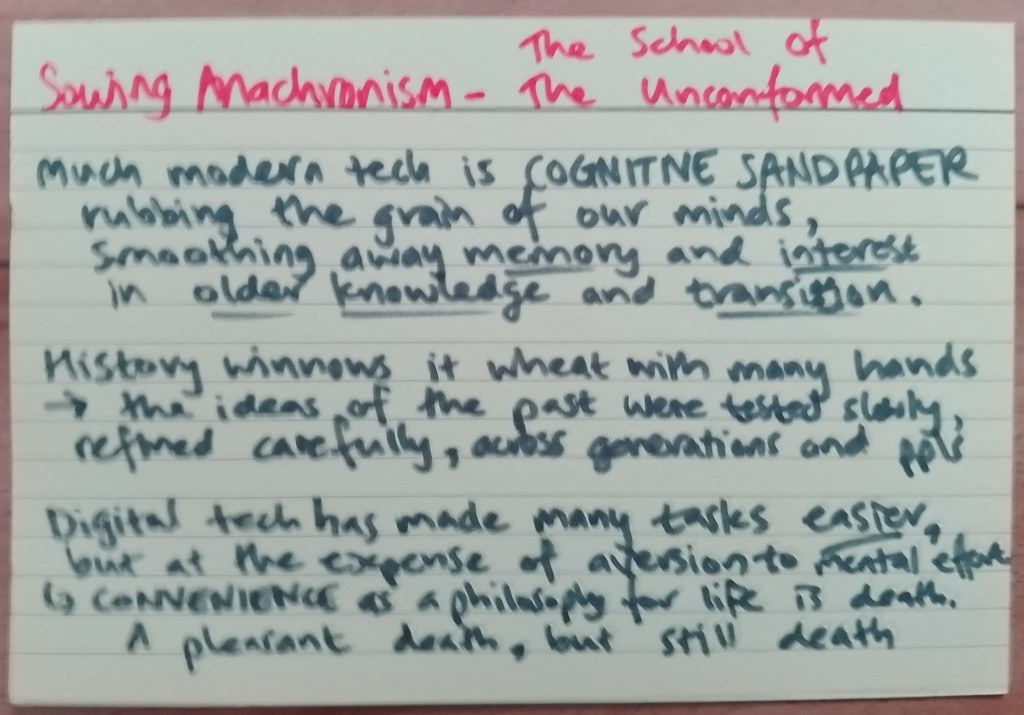 The School of
Sowing Anachronism - The Unconformed
Much modern tech is COGNITIVE SANDPAPER
rubbing the grain of our minds,
smoothing away memory and interest
in older knowledge and transission.
History winnows it wheat with many hands
→ the ideas of the past were tested slowly,
refined carefully, across generations and ppls
Digital tech has made many tasks easier,
but at the expense of aversion to mental effort
↳ CONVENIENCE as a philosophy for life is death.
A pleasant death, but still death